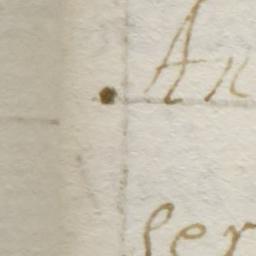 An
ser